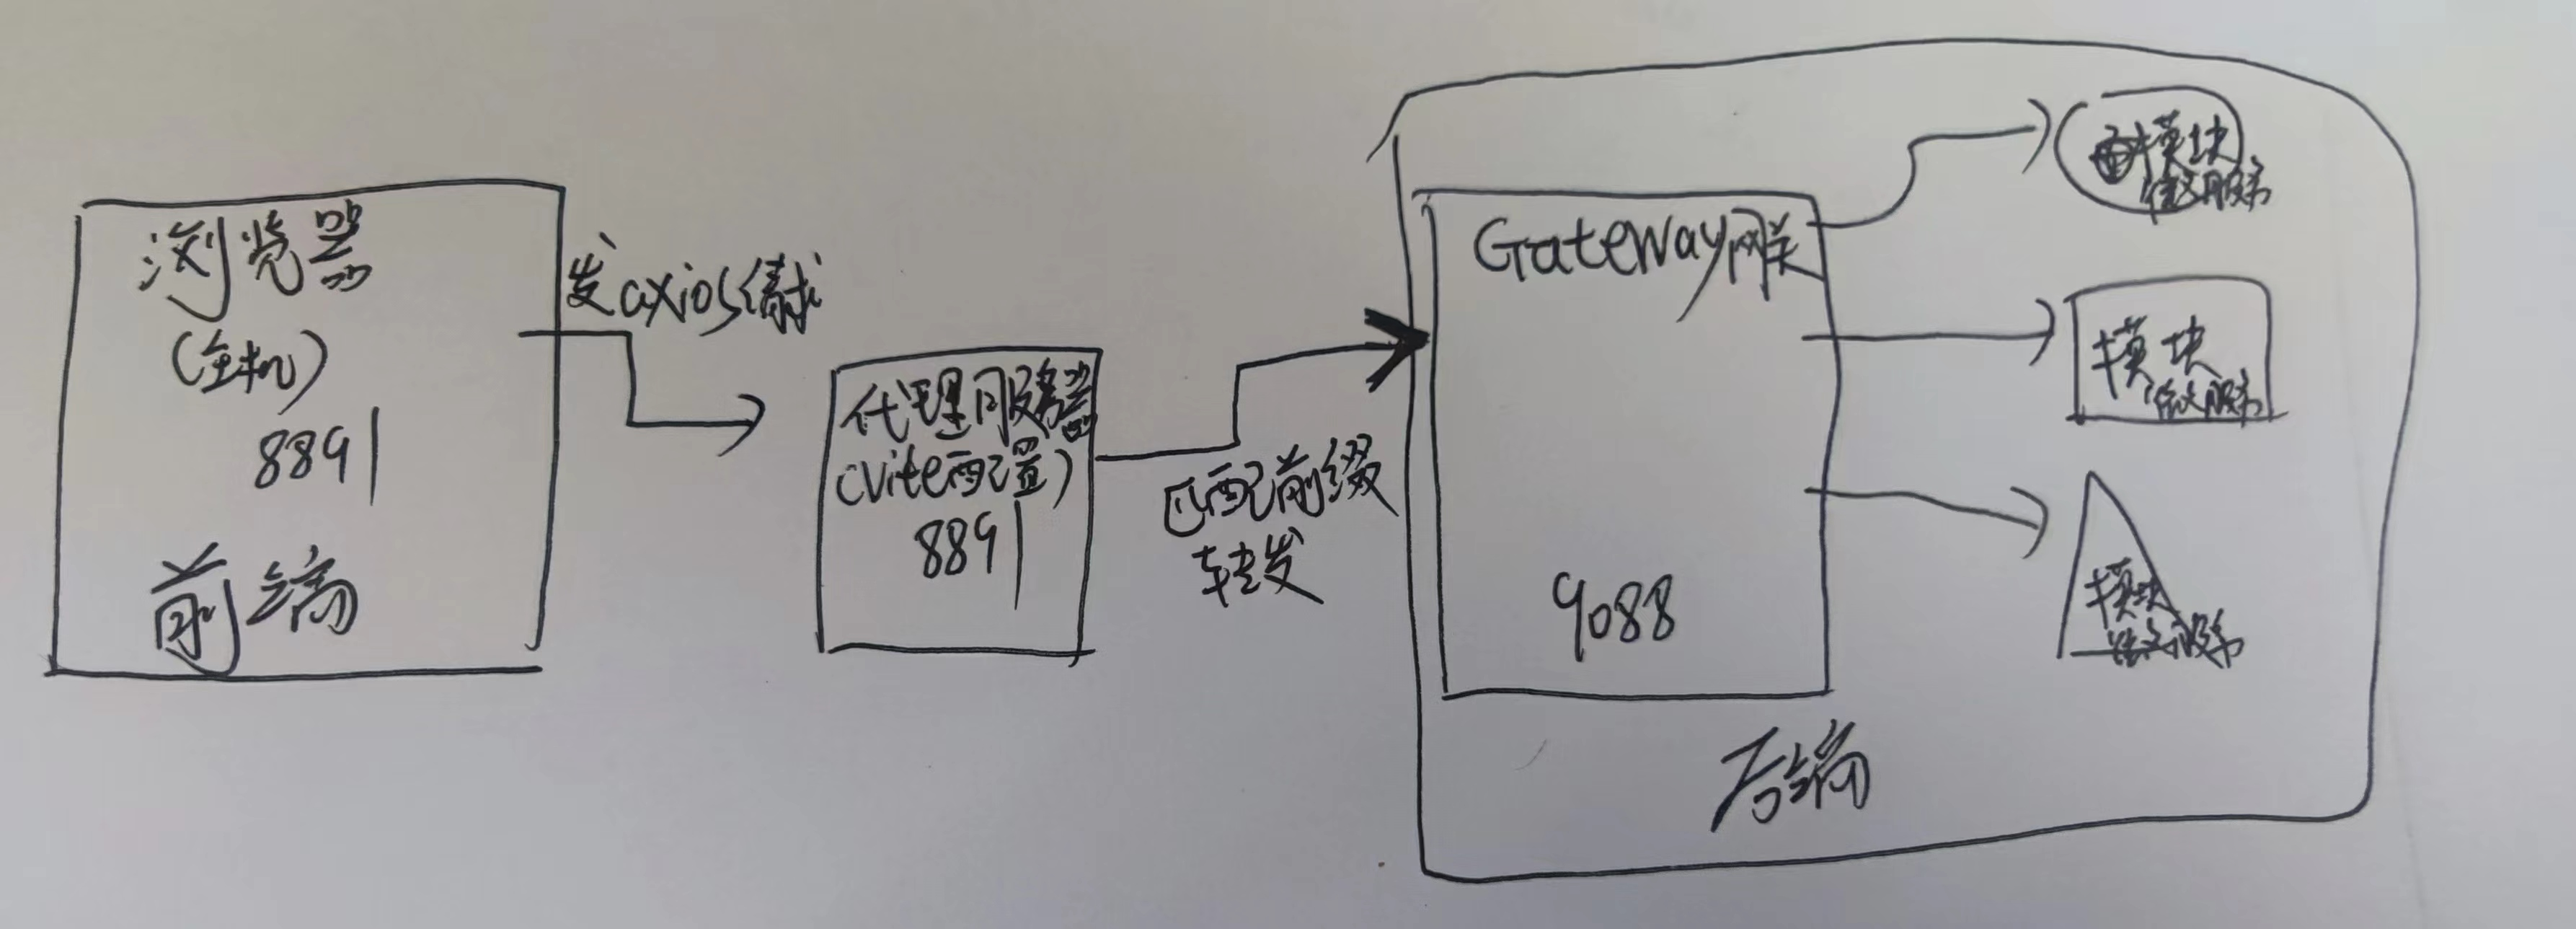 浏览器
(主机)
8891
前端
发axios请求
代理服务器
(Vite配置)
8891
匹配前缀
转发
Gateway网关
9088
后端
模块
微服务
模块
微服务
模块
微服务